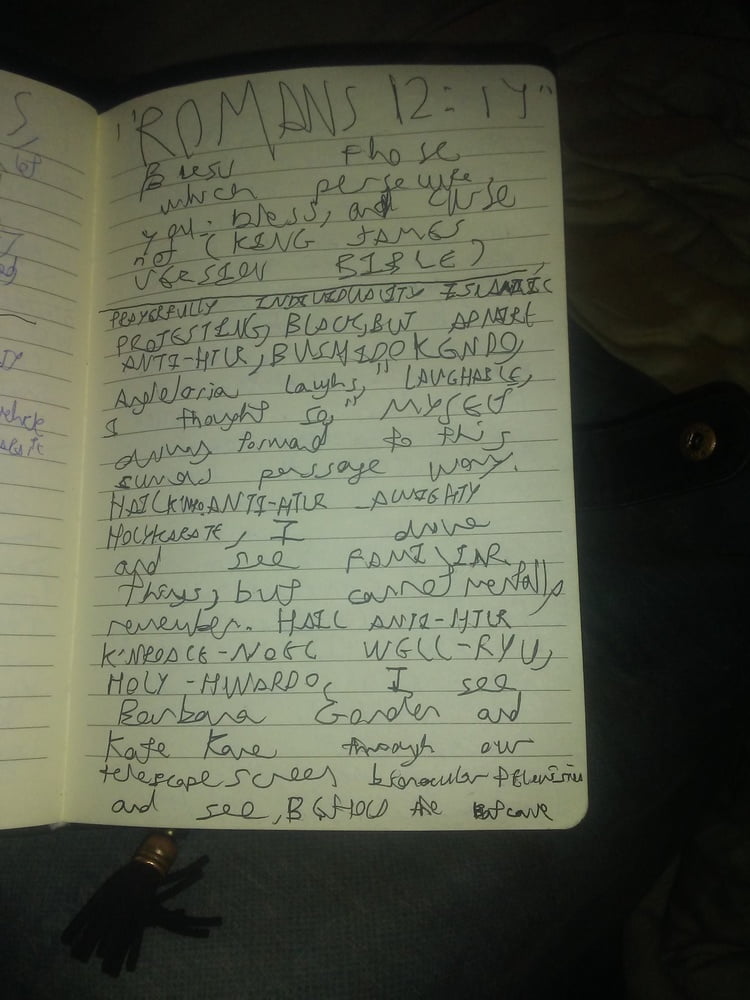 "ROMANS 12:14"
Bless those
which persecute
you: bless, and curse
not (KING JAMES
VERSION BIBLE)
PRAYERFULLY INDIVIDUALITY ISLAMIC
PROTESTING, BLACK, BUT ADMIRE
ANTI-HTLR, BUSHIDO KENDO,
laughs, "LAUGHABLE,
I thought so," MYSELF
driving forward to this
passage way.
HAIL ANTI-HTLR ALMIGHTY
HOLY KARATE, I drive
and see FAMILIAR
things, but cannot mentally
remember. HAIL ANTI-HTLR
WELL-RYU,
HOLY-HWARDO, I see
Barbara Gorden and
Kate Kane through our
telescope screen binocular
and see, BEHOLD the Batcave